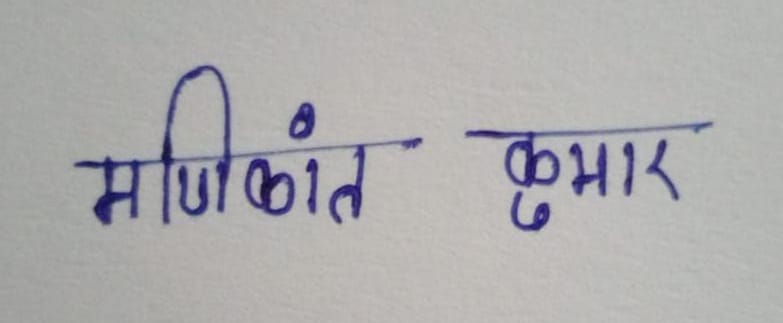 मणिकांत कुमार